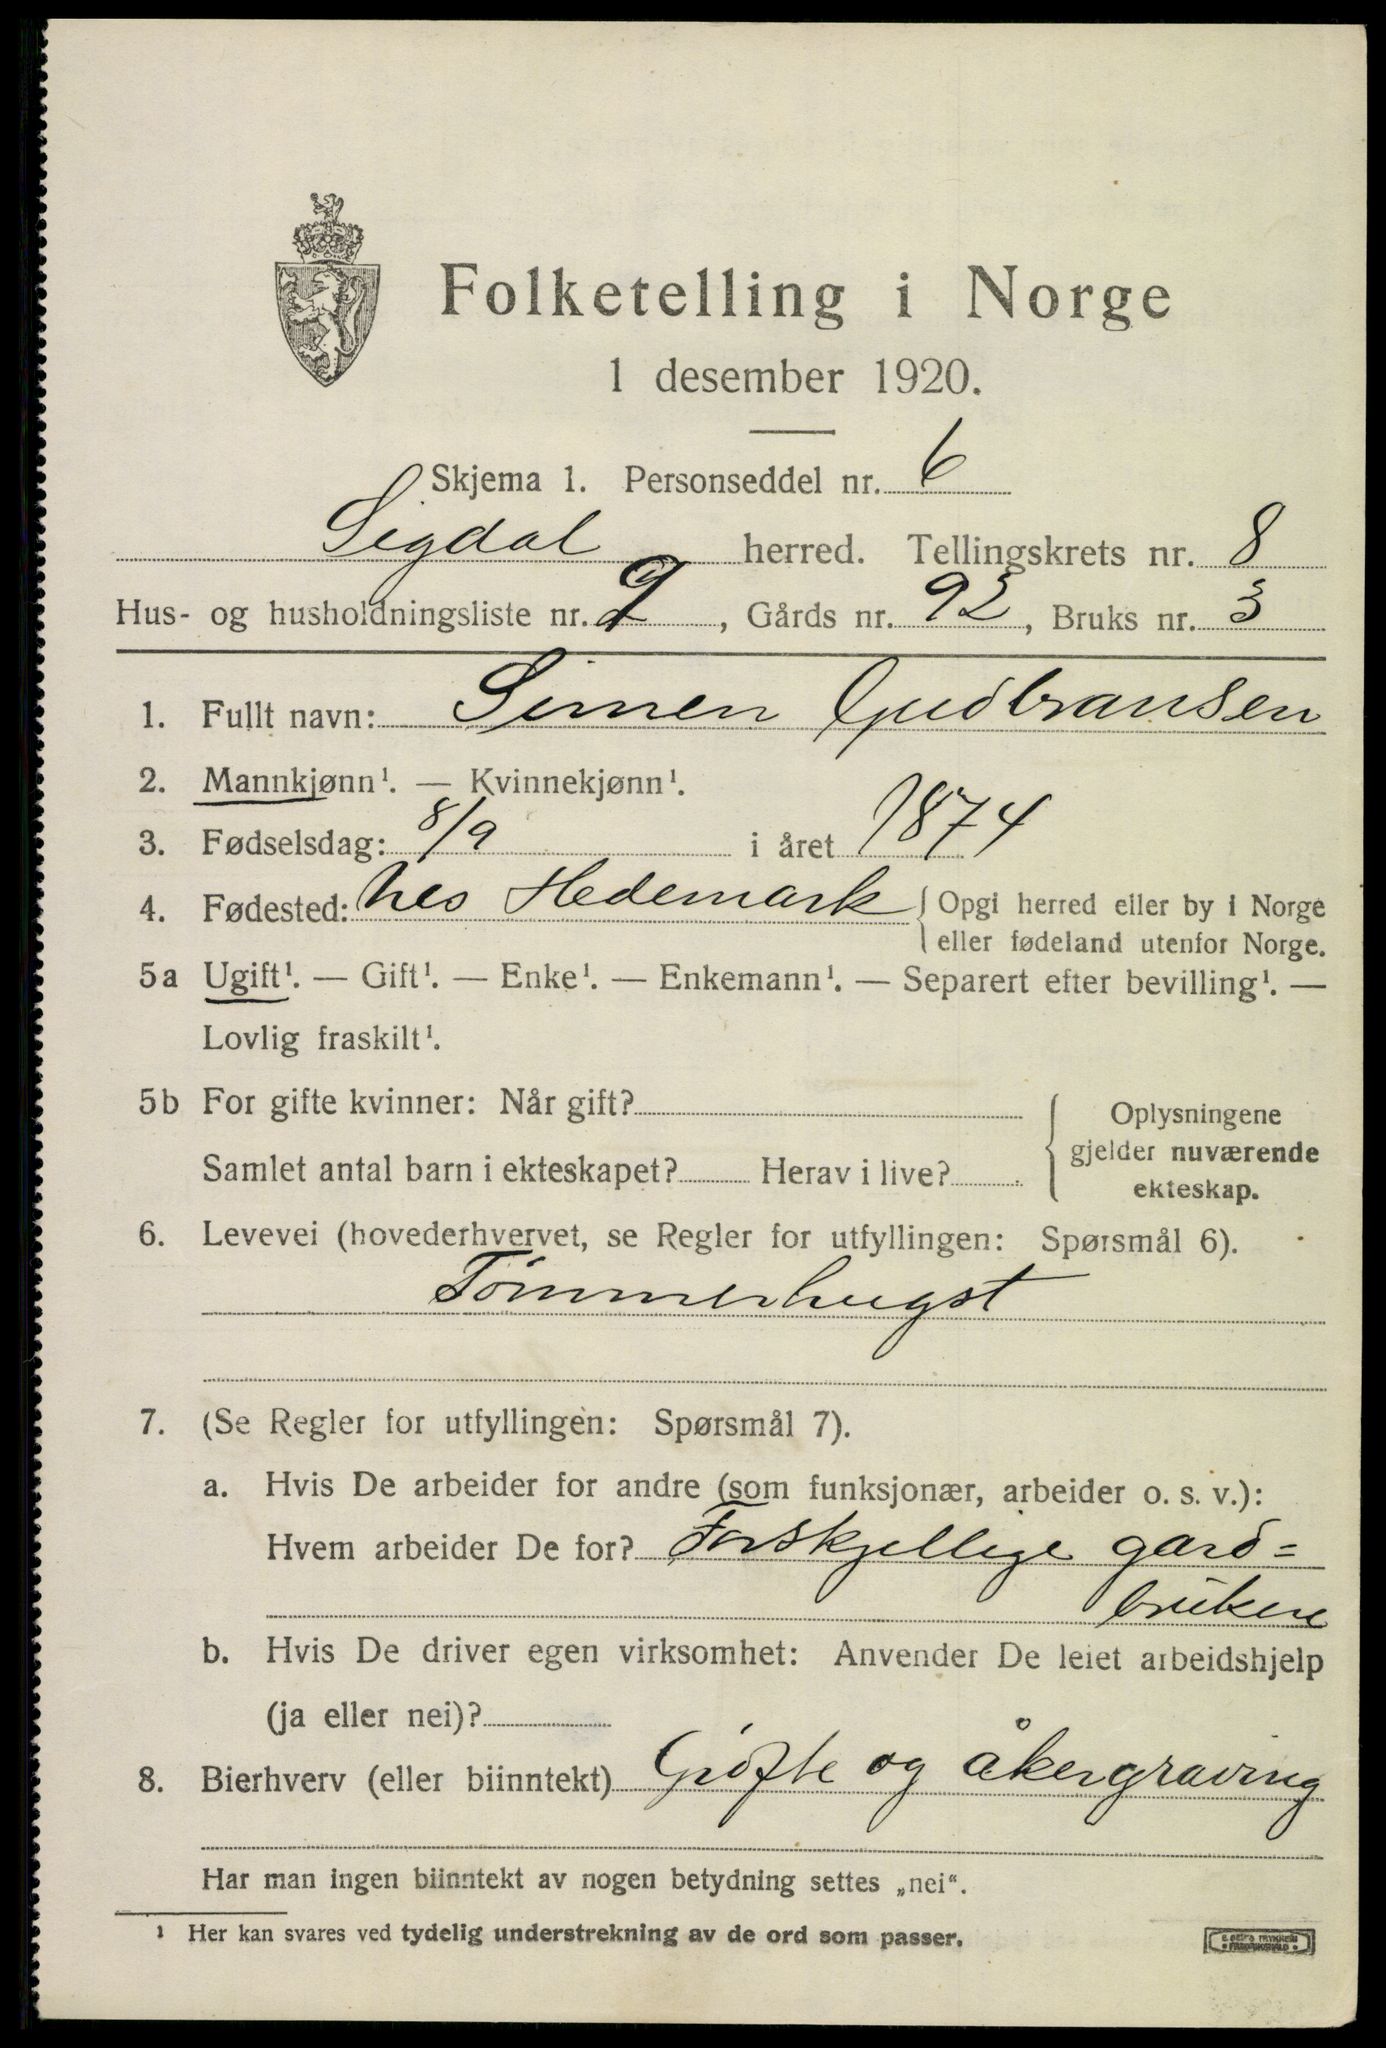 Folketelling i Norge
1 desember 1920.
Skjema 1. Personseddel nr. 6
Sigdal herred. Tellingskrets nr. 8
Hus- og husholdningsliste nr. 9, Gårds nr. 93, Bruks nr. 3
1. Fullt navn: Simen Gudbransen
2. Mannkjønn¹. — Kvinnekjønn¹.
3. Fødselsdag: 8/9 i året 1874
4. Fødested: Nes Hedemark { Opgi herred eller by i Norge
eller fødeland utenfor Norge.
5a Ugift¹. — Gift¹. — Enke¹. — Enkemann¹. — Separert efter bevilling¹. —
Lovlig fraskilt¹.
5b For gifte kvinner: Når gift?
Samlet antal barn i ekteskapet? Herav i live?
Oplysningene
gjelder nuværende
ekteskap.
6. Levevei (hovederhvervet, se Regler for utfyllingen: Spørsmål 6).
Tömmerhugst
7. (Se Regler for utfyllingen: Spørsmål 7).
a. Hvis De arbeider for andre (som funksjonær, arbeider o. s. v.):
Hvem arbeider De for? Forskjellige gard=
brukere
b. Hvis De driver egen virksomhet: Anvender De leiet arbeidshjelp
(ja eller nei)?
8. Bierhverv (eller biinntekt) Gröfte og åkergraving
Har man ingen biinntekt av nogen betydning settes „nei“.
¹ Her kan svares ved tydelig understrekning av de ord som passer.